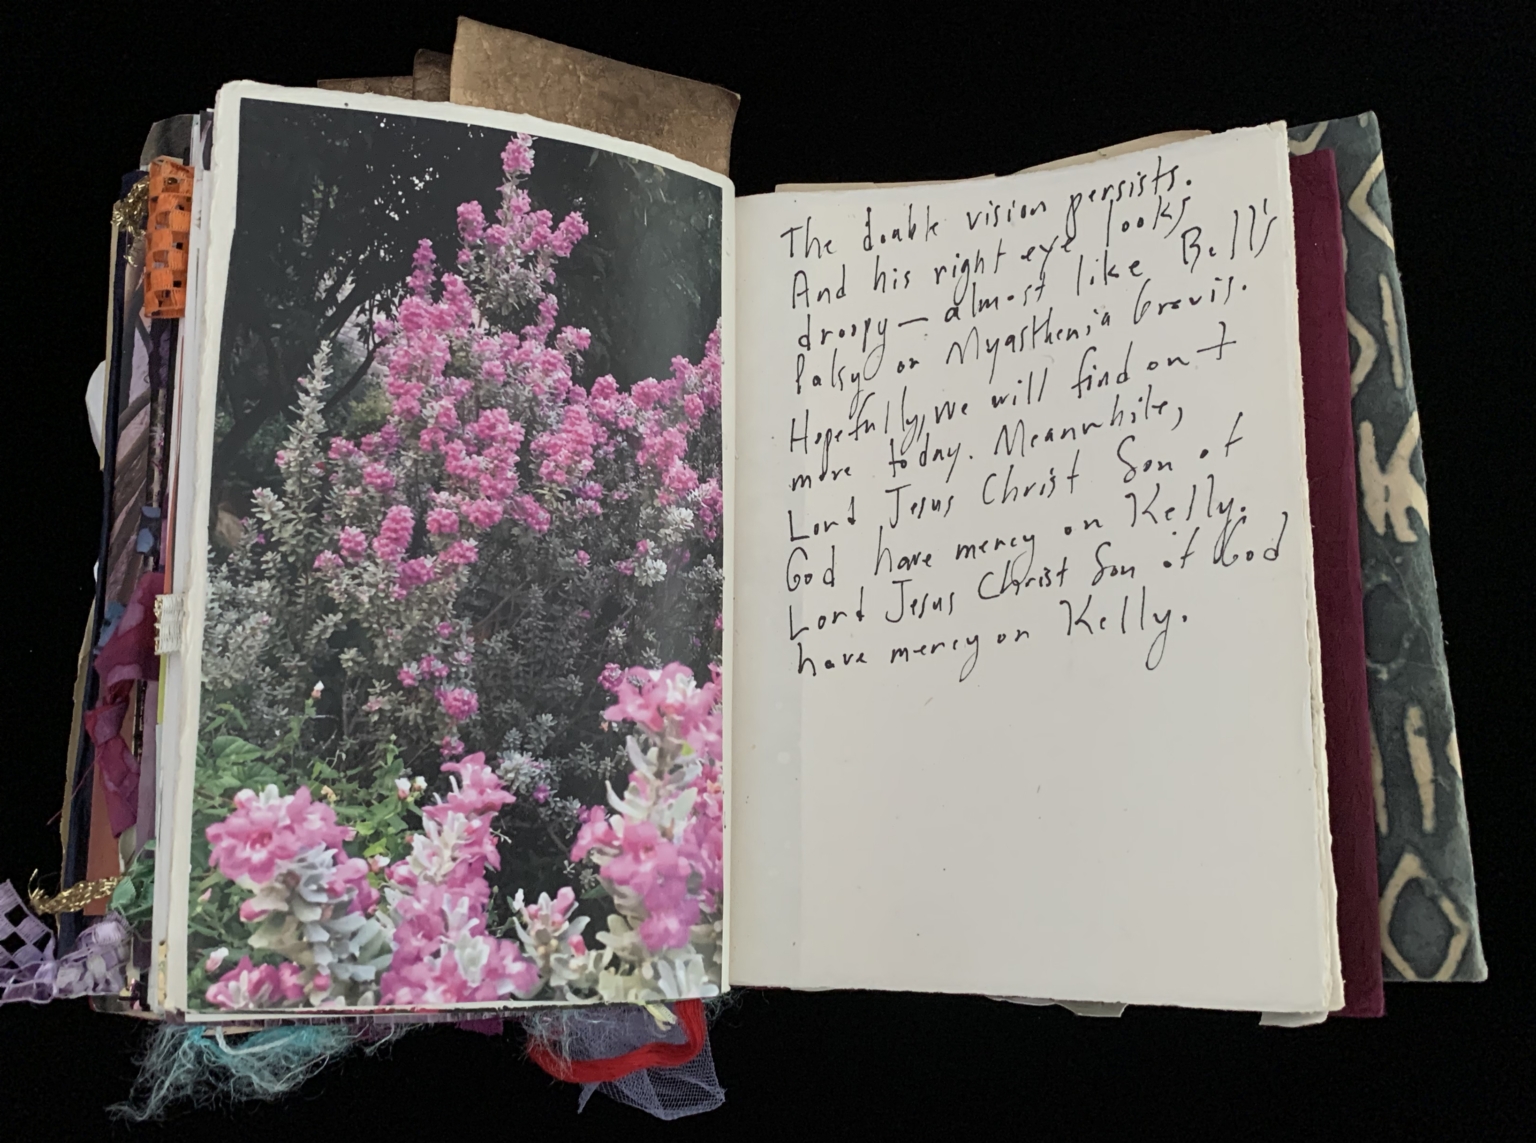 The double vision persists.
And his right eye looks
droopy — almost like Bell's
Palsy or Myasthenia Gravis.
Hopefully, we will find out
more today. Meanwhile,
Lord Jesus Christ Son of
God have mercy on Kelly.
Lord Jesus Christ Son of God
have mercy on Kelly.